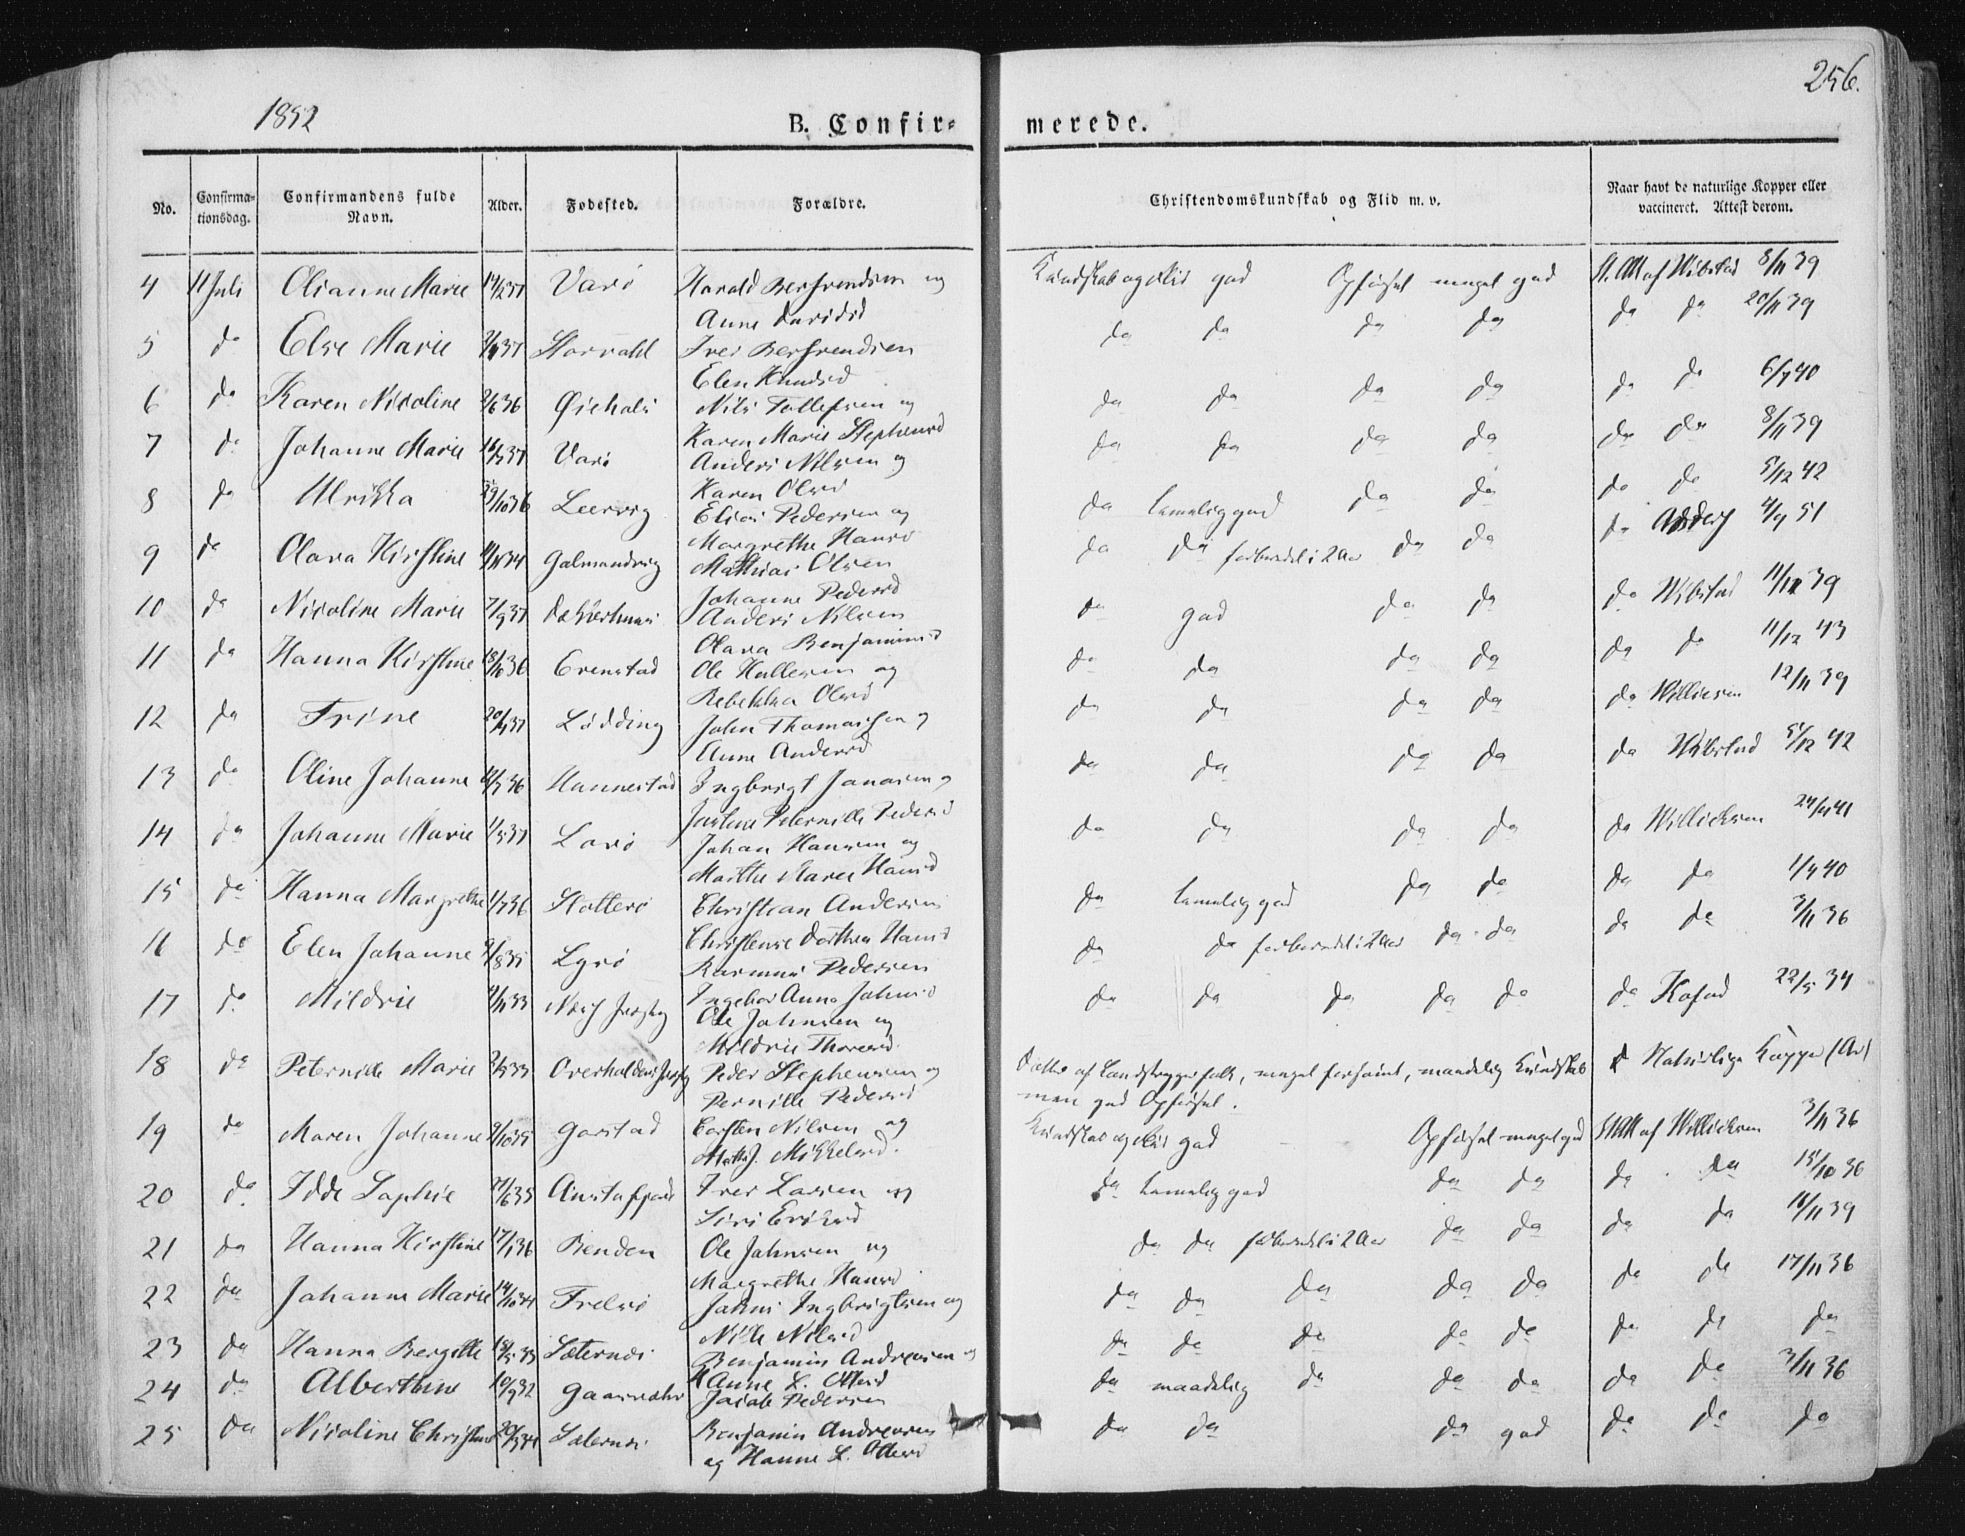 1852
256.
B. Confir-
merede.
No.
Confirma-
tionsdag.
Confirmandens fulde
Navn.
Alder.
Fødested.
Forældre.
Christendomskundskab og Flid m. v.
Naar havt de naturlige Kopper eller
vaccineret. Attest derom.
4 11 Juli Olianne Marie Varø Harald Berhrendsen og Kundskab og Flid god Opførsel meget god St. Att af Wibstad 8/11 39
Anne Davidsd
5 do Else Marie Storvahl Iver Berhrendsen do do do do do do 20/11 39
Elen Knudsd
6 do Karen Nicoline 2/6 36 Øiehals Nils Tollefsen og do do do do do do 6/7 40
Karen Marie Stephensd
7 do Johanne Marie Varø Anders Nilsen og do do do do do do 8/11 39
Karen Olsd
8 do Ulrikka 29/10 36 Leervig Elias Pedersen og do temelig god do do do do 5/12 42
Margrethe Hansd
9 do Olava Kirstine Galmandvig Mathias Olsen do do forberedt i 2 Aar do do do 4/9 51
Johanne Pedersd
10 do Nicoline Marie 7/9 37 Anders Nilsen do god do do do Wibstad 11/12 39
Olava Benjaminsd
11 do Hanna Kirstine 18/10 36 Evenstad Ole Hullesen og do do do do do do 11/12 43
Rebekka Olsd
12 do Trine Lødding John Thomassen og do do do do do Willicsen 12/11 39
Anne Andersd
13 do Oline Johanne Hunnestad Ingbrigt Jonasen og do do do do do Wibstad 5/12 42
Peternille Pedersd
14 do Johanne Marie 1/5 37 Lovø Johan Hansen og do do do do do Willicksen
Marthe Maree Hansd
15 do Hanna Margrethe 1/7 36 Slotterø Christian Andersen do temelig god do do do do 1/7 40
Christense Dorthea Hansd
16 do Elen Johanne 9/8 35 Lyrø Rasmus Pedersen do do forberedt i 2 Aar do do do do 3/11 36
Ingebor Anna Johnsd
17 do Mildrie 9/11 33 Ole Johnsen og do do do do do do Kofod 22/5 34
Mildrie Thoresd
18 do Peternille Marie Peder Stephensen og Datter af Landstrygerfolk, meget forsømt, maadelig Kundskab Naturlige Kopper (Ar)
Pernille Pedersd men god Opførsel.
19 do Maren Johanne 9/10 35 Garstad Carsten Nilsen og Kundskab og Flid god Opførsel meget god St Att af Willicksen 3/11 36
Marth J. Mikkelsd.
20 do Idde Sophie Iver Larsen og do temelig god do do do do 15/10 36
Siri Ericksd
21 do Hanna Kirstine 17/1 36 Benden Ole Johnsen og do do forberedt i 2 Aar do do do do 11/11 39
Margrethe Hansd
22 do Johanne Marie 14/10 34 Frelsø Ingbrigtsen og do do do do do do do 17/11 36
Nille Nilsd
23 do Hanna Bergitte 18/5 35 Sæternes Benjamin Andreasen og do do do do do do do do
Hanne L. Ottesd
24 do Albertine 10/9 32 Jacob Pedersen do maadelig do do do do do 3/11 36
25 do Nicoline Christine Sæternes Benjamin Andreasen do do do god do do do
og Hanne L. Ottesd